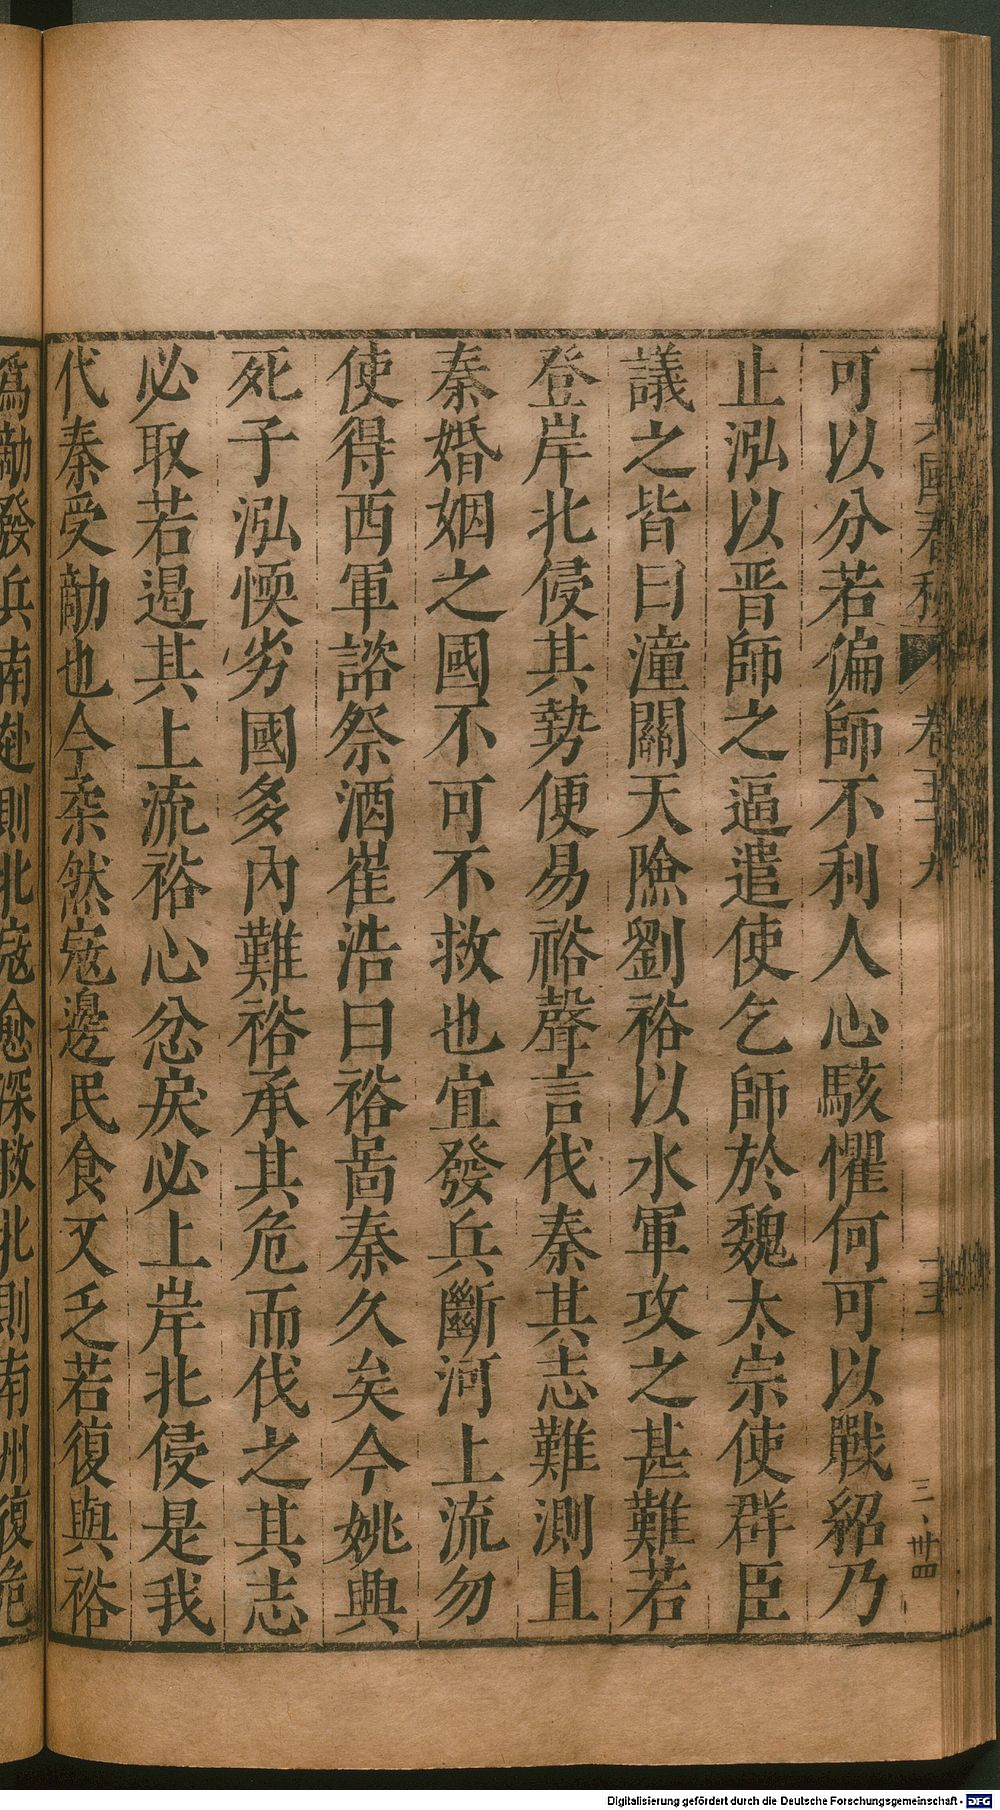 十六國春秋 卷五十九 十五 三·卅四
可以分若偏師不利人心駭懼何可以戰紹乃
止泓以晋師之逼遣使乞師於魏太宗使群臣
議之皆曰潼關天險劉裕以水軍攻之甚難若
登岸北侵其勢便易裕聲言伐秦其志難測且
秦婚姻之國不可不救也宜發兵斷河上流勿
使得西軍諮祭酒崔浩曰裕啚秦久矣今姚興
死子泓愞劣國多內難裕承其危而伐之其志
必取若遏其上流裕心忿戾必上岸北侵是我
代秦受敵也今柔然寇邊民食又乏若復與裕
爲敵發兵南赴則北寇愈深救北則南州復危
Digitalisierung gefördert durch die Deutsche Forschungsgemeinschaft - DFG